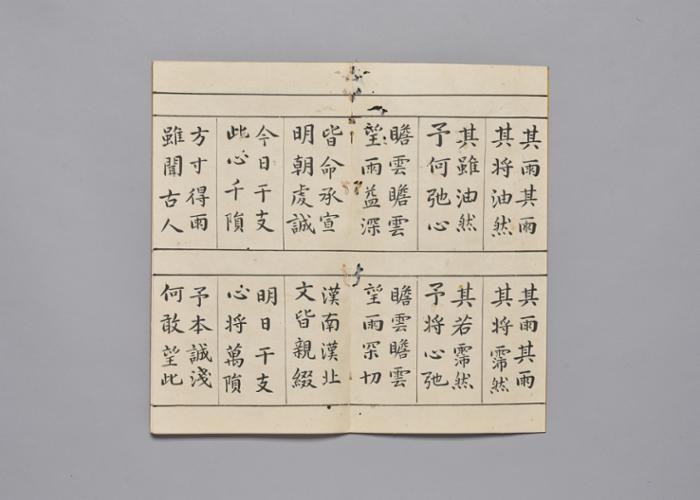 其雨其雨
其将油然
其雖油然
予何弛心
瞻雲瞻雲
望雨益深
皆命承宣
明朝虔誠
今日干支
此心千隕
方寸得雨
雖聞古人
其雨其雨
其将霈然
其若霈然
予将心弛
瞻雲瞻雲
望雨罙切
漢南漢北
文皆親綴
明日干支
心将萬隕
予本誠淺
何敢望此